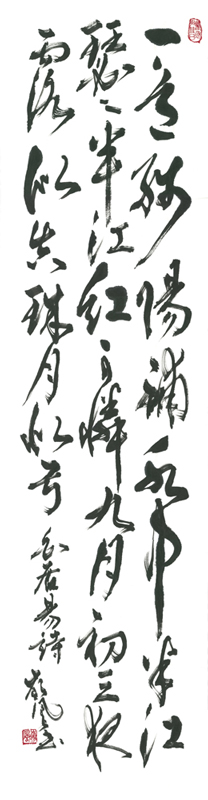 一道殘陽鋪水中半江
瑟〻半江紅可憐九月初三夜
露似真珠月似弓 白居易詩